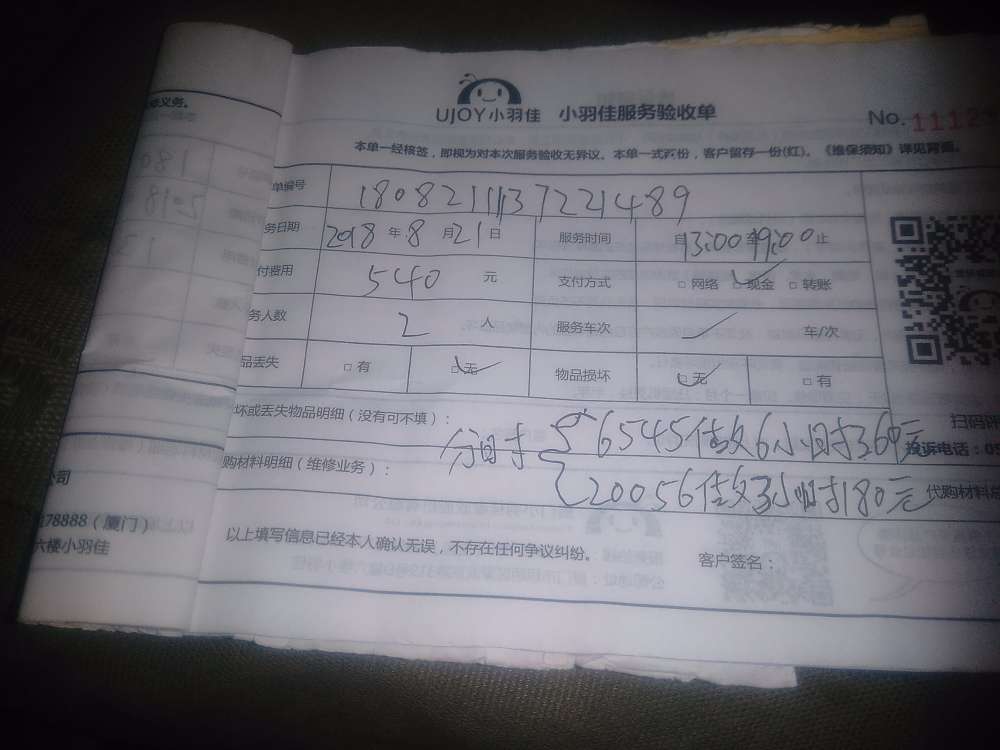 UJOY小羽佳 小羽佳服务验收单 No.1112
本单一经核签，即视为对本次服务验收无异议。本单一式两份，客户留存一份(红)。《维保须知》详见背面。
单编号 1808211137221489
务日期 2018 年 8 月 21 日 服务时间 13:00 19:00 止
付费用 540 元 支付方式 □ 网络 ☑ 现金 □ 转账
务人数 2 人 服务车次 车/次
品丢失 □ 有 ☑ 无 物品损坏 ☑ 无 □ 有
坏或丢失物品明细（没有可不填）： 扫码评
分时 6545 做 6小时 360元 投诉电话：05
购材料明细（维修业务）： 20056 做 3小时 180元 代购材料总
以上填写信息已经本人确认无误，不存在任何争议纠纷。 客户签名：
务义务。
公司
78888（厦门）
六楼小羽佳